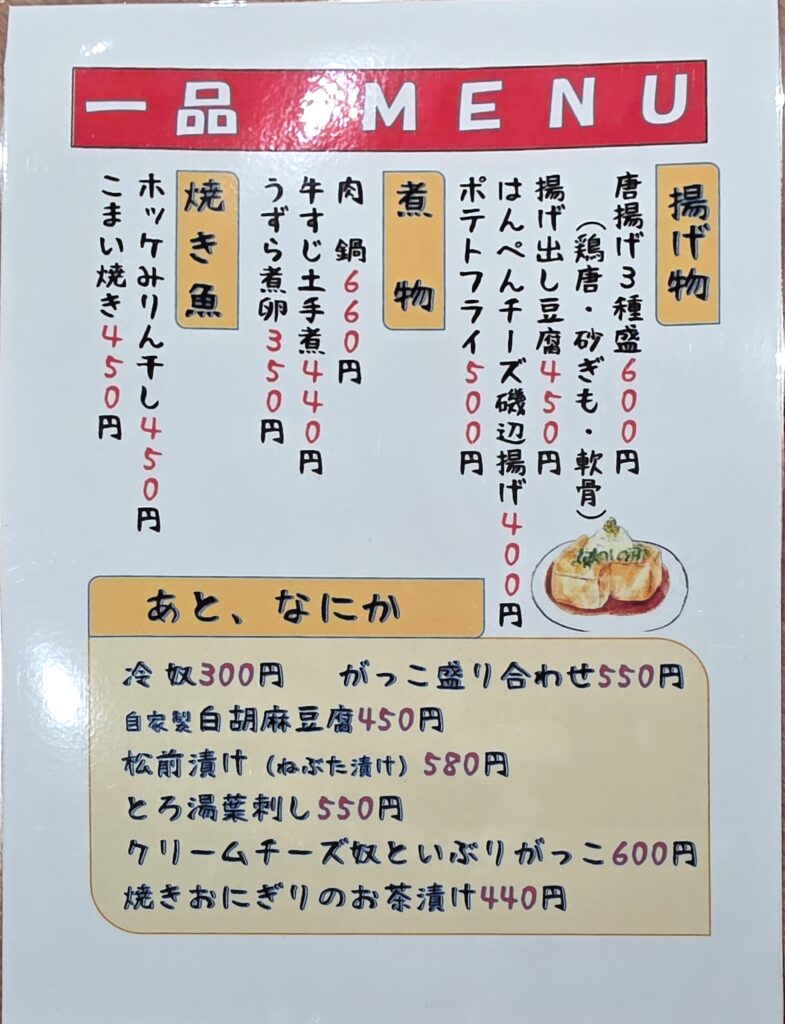 一品 MENU
揚げ物
唐揚げ3種盛600円
（鶏唐・砂ぎも・軟骨）
揚げ出し豆腐450円
はんぺんチーズ磯辺揚げ400円
ポテトフライ500円
煮物
肉鍋660円
牛すじ土手煮440円
うずら煮卵350円
焼き魚
ホッケみりん干し450円
こまい焼き450円
あと、なにか
冷奴300円 がっこ盛り合わせ550円
自家製白胡麻豆腐450円
松前漬け（ねぶた漬け）580円
とろ湯葉刺し550円
クリームチーズ奴といぶりがっこ600円
焼きおにぎりのお茶漬け440円